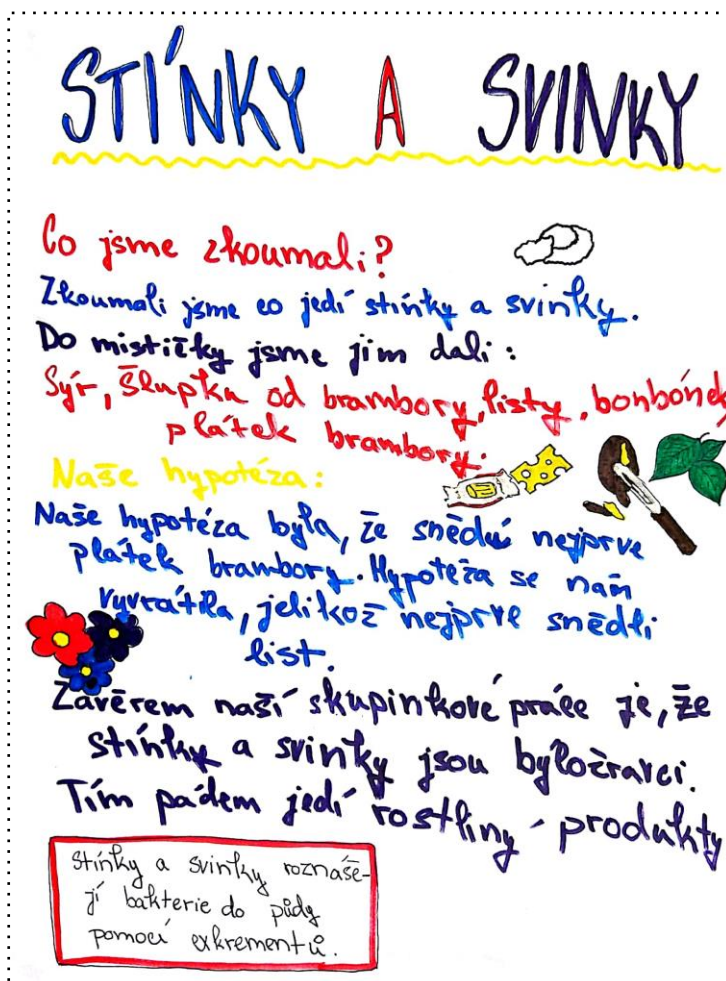 STÍNKY A SVINKY
Co jsme zkoumali?
Zkoumali jsme co jedí stínky a svinky.
Do mističky jsme jim dali :
Sýr, šlupka od brambory, listy, bonbónek,
plátek brambory.
Naše hypotéza :
Naše hypotéza byla, že snědí nejprve
plátek brambory. Hypotéza se nám
vyvrátila, jelikož nejprve snědli
list.
Závěrem naší skupinkové práce je, že
stínky a svinky jsou býložravci.
Tím pádem jedí rostliny - produkty
Stínky a svinky roznáše-
jí bakterie do půdy
pomocí exkrementů.